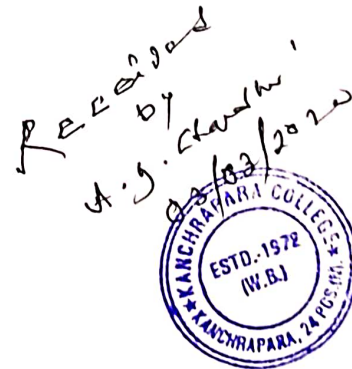 Received
by
03/03/2020
KANCHRAPARA COLLEGE
ESTD.-1972
(W.B.)
KANCHRAPARA, 24 PGS.(N).